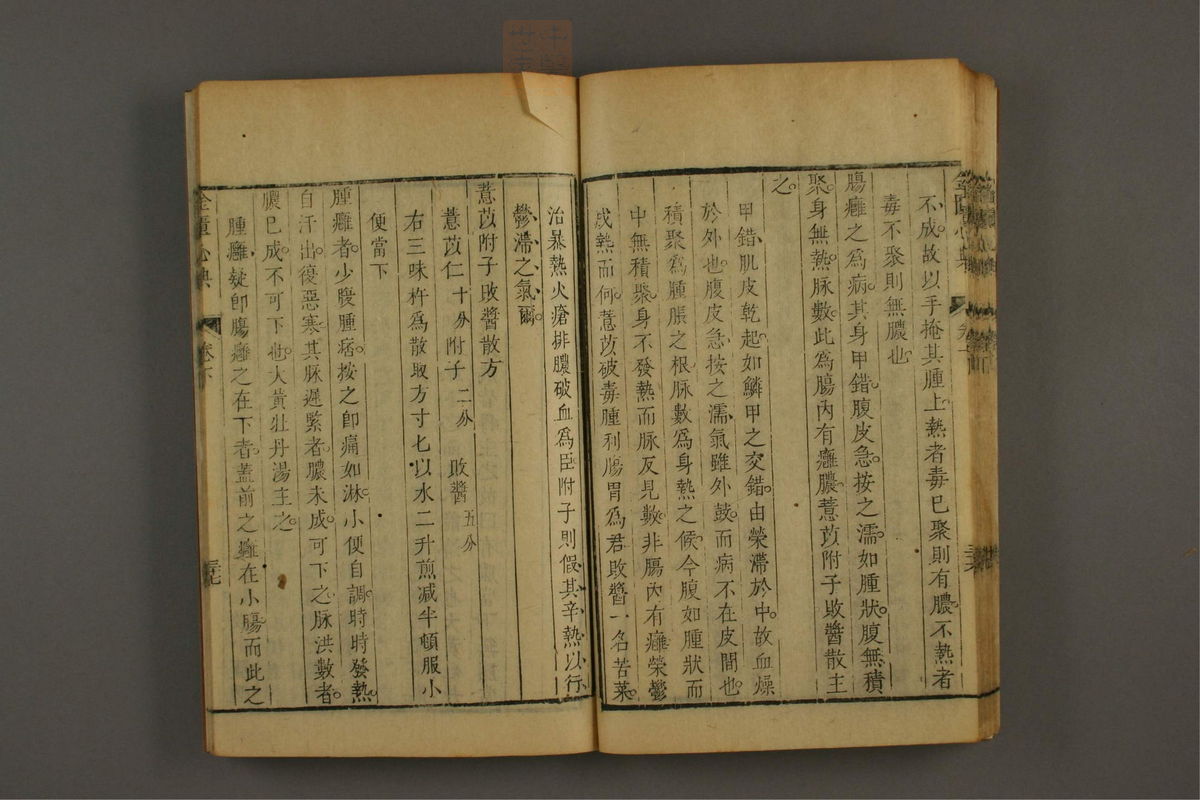 不成故以手掩其腫上熱者毒已聚則有膿不熱者
毒不聚則無膿也
腸癰之為病其身甲錯腹皮急按之濡如腫狀腹無積
聚身無熱脉數此為腸內有癰膿薏苡附子敗醬散主
之
甲錯肌皮乾起如鱗甲之交錯由榮滯於中故血燥
於外也腹皮急按之濡氣雖外鼓而病不在皮間也
積聚為腫脹之根脉數為身熱之候今腹如腫狀而
中無積聚身不發熱而脉反見數非腸內有癰榮鬱
成熱而何薏苡破毒腫利腸胃為君敗醬一名苦菜
治暴熱火瘡排膿破血為臣附子則假其辛熱以行
鬱滯之氣爾
薏苡附子敗醬散方
薏苡仁十分 附子二分 敗醬五分
右三味杵為散取方寸匕以水二升煎减半頓服小
便當下
腫癰者少腹腫痞按之即痛如淋小便自調時時發熱
自汗出復惡寒其脉遲緊者膿未成可下之脉洪數者
膿已成不可下也大黃牡丹湯主之
腫癰疑即腸癰之在下者蓋前之癰在小腸而此之
金匱心典 卷下 三七